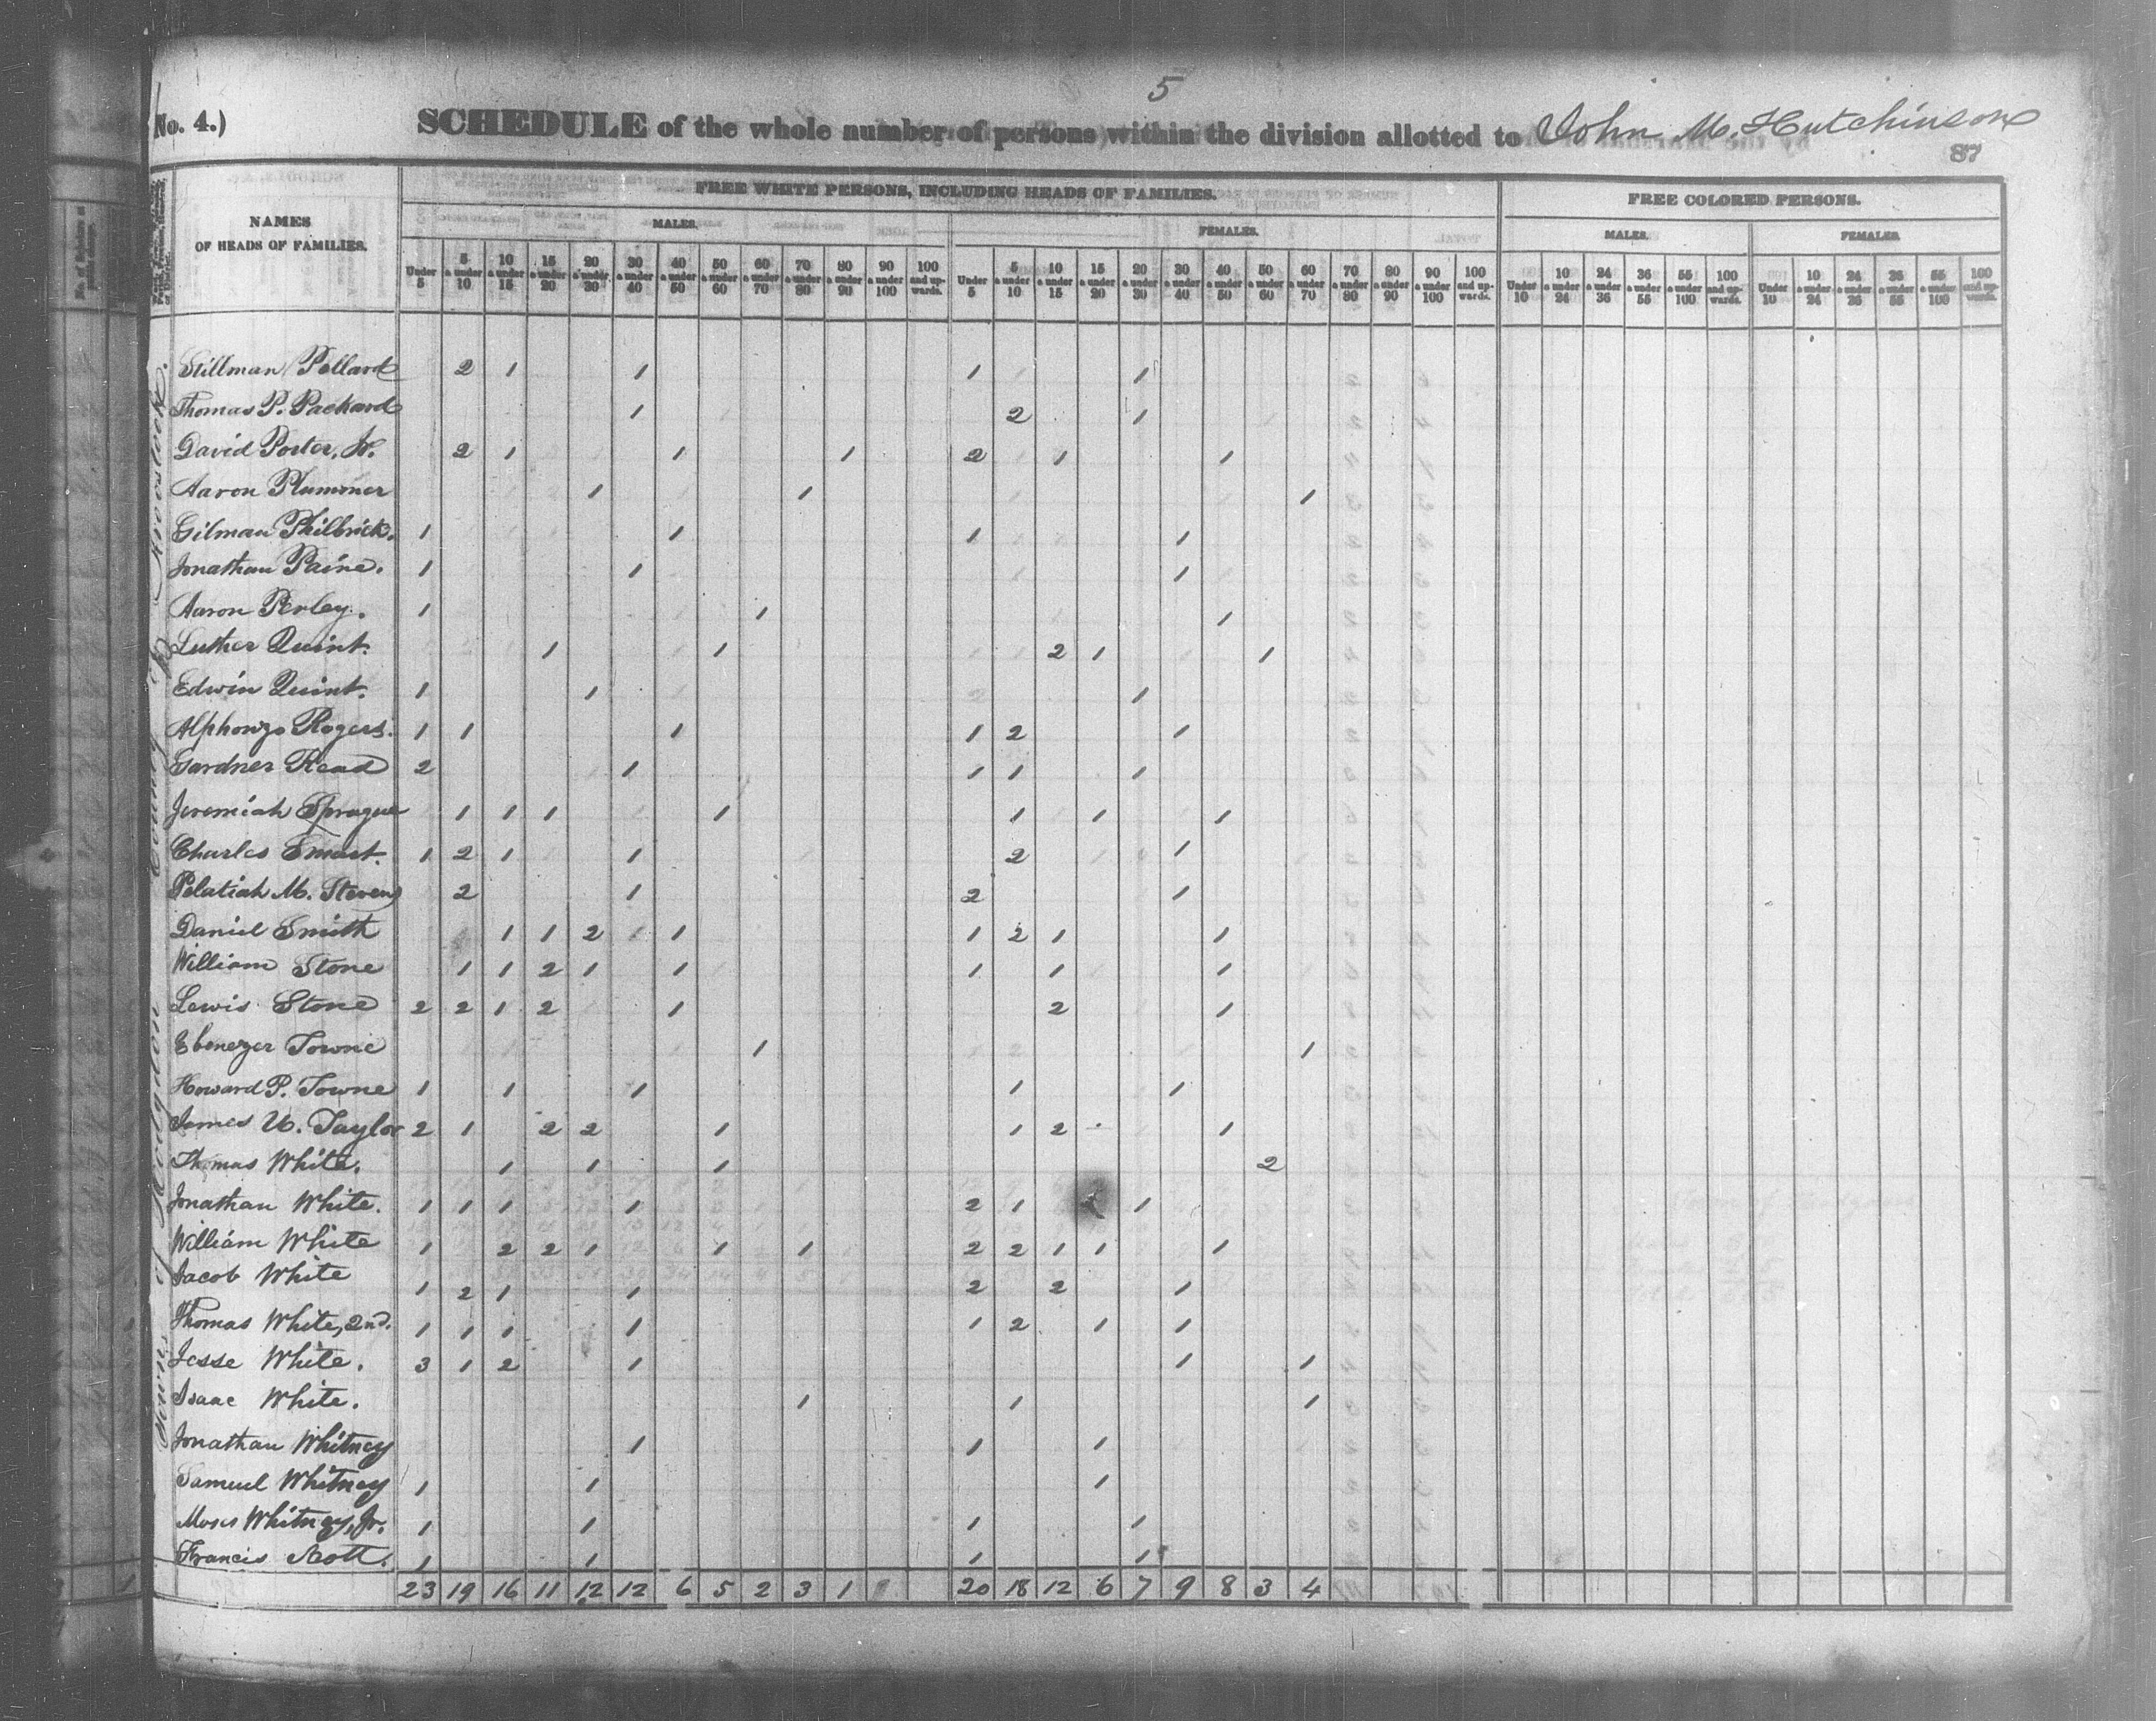 5
No. 4.)
SCHEDULE of the whole number of persons within the division allotted to John M. Hutchinson
87
FREE WHITE PERSONS, INCLUDING HEADS OF FAMILIES.
FREE COLORED PERSONS.
NAMES
OF HEADS OF FAMILIES.
MALES.
FEMALES.
MALES.
FEMALES.
Under 5 | 5 & under 10 | 10 & under 15 | 15 & under 20 | 20 & under 30 | 30 & under 40 | 40 & under 50 | 50 & under 60 | 60 & under 70 | 70 & under 80 | 80 & under 90 | 90 & under 100 | 100 and upwards. | Under 5 | 5 & under 10 | 10 & under 15 | 15 & under 20 | 20 & under 30 | 30 & under 40 | 40 & under 50 | 50 & under 60 | 60 & under 70 | 70 & under 80 | 80 & under 90 | 90 & under 100 | 100 and upwards. | Under 10 | 10 & under 24 | 24 & under 36 | 36 & under 55 | 55 & under 100 | 100 and upwards. | Under 10 | 10 & under 24 | 24 & under 36 | 36 & under 55 | 55 & under 100 | 100 and upwards.
Town of Hodgdon County of Aroostook.
Stillman Pollard 2 1 1 1 1
Thomas P. Packard 1 2 1
David Porter, Jr. 2 1 1 1 2 1 1
Aaron Plummer 1 1 1
Gilman Philbrick. 1 1 1 1
Jonathan Paine. 1 1 1
Aaron Perley. 1 1 1
Luther Quint. 1 1 2 1 1
Edwin Quint. 1 1 1
Alphonzo Rogers. 1 1 1 1 2 1
Gardner Read 2 1 1 1 1
Jeremiah Sprague 1 1 1 1 1 1 1
Charles Smart. 1 2 1 1 2 1
Pelatiah M. Stevens 2 1 2 1
Daniel Smith 1 1 2 1 1 2 1 1
William Stone 1 1 2 1 1 1 1 1
Lewis Stone 2 2 1 2 1 2 1
Ebenezer Towne 1 1
Howard P. Towne 1 1 1 1 1
James U. Taylor 2 1 2 2 1 1 2 1
Thomas White. 1 1 1 2
Jonathan White. 1 1 1 1 2 1 1
William White 1 2 2 1 1 1 2 2 1 1 1
Jacob White 1 2 1 1 2 2 1
Thomas White, 2nd. 1 1 1 1 1 2 1 1
Jesse White. 3 1 2 1 1 1
Isaac White. 1 1 1
Jonathan Whitney 1 1 1
Samuel Whitney 1 1 1
Moses Whitney, Jr. 1 1 1 1
Francis Scott. 1 1 1 1
23 19 16 11 12 12 6 5 2 3 1 20 18 12 6 7 9 8 3 4